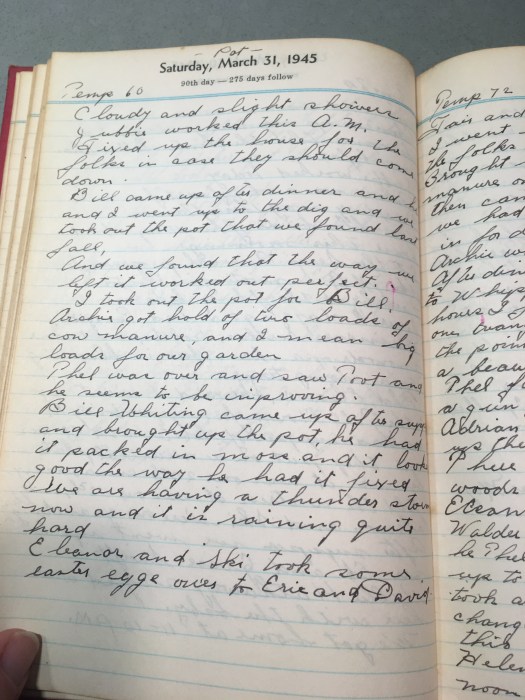 - Pot -
Saturday, March 31, 1945
90th day — 275 days follow
Temps 60
Cloudy and slight showers
Tubbie worked this A.M.
Fixed up the house for the
folks in case they should come
down.
Bill came up after dinner and
and I went up to the dig and we
took out the pot that we found last
fall,
And we found that the way we
left it worked out perfect.
I took out the pot for Bill.
Archie got hold of two loads of
cow manure, and I mean big
loads for our garden
Phel was over and saw Toot and
he seems to be improoving.
Bill Whiting came up after supp
and brought up the pot, he had
it packed in moss and it look
good the way he had it fixed
We are having a thunder storm
now and it is raining quite
hard
Eleanor and Ski took some
easter eggs over to Eric and David.
Temp 72
Fair and
I went
the folks
Brought
manure o
then cam
we had
in for d
Archie w
After din
to Whip
hours I
over Evan
the poin
a beau
Phel
a gun
Adrian
up the
Phee
woods
Elean
Walde
he Phel
up to
took a
chang
this
Helen
noon